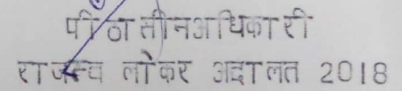 पीठासीनअधिकारी
राजस्व लोकर अदालत 2018